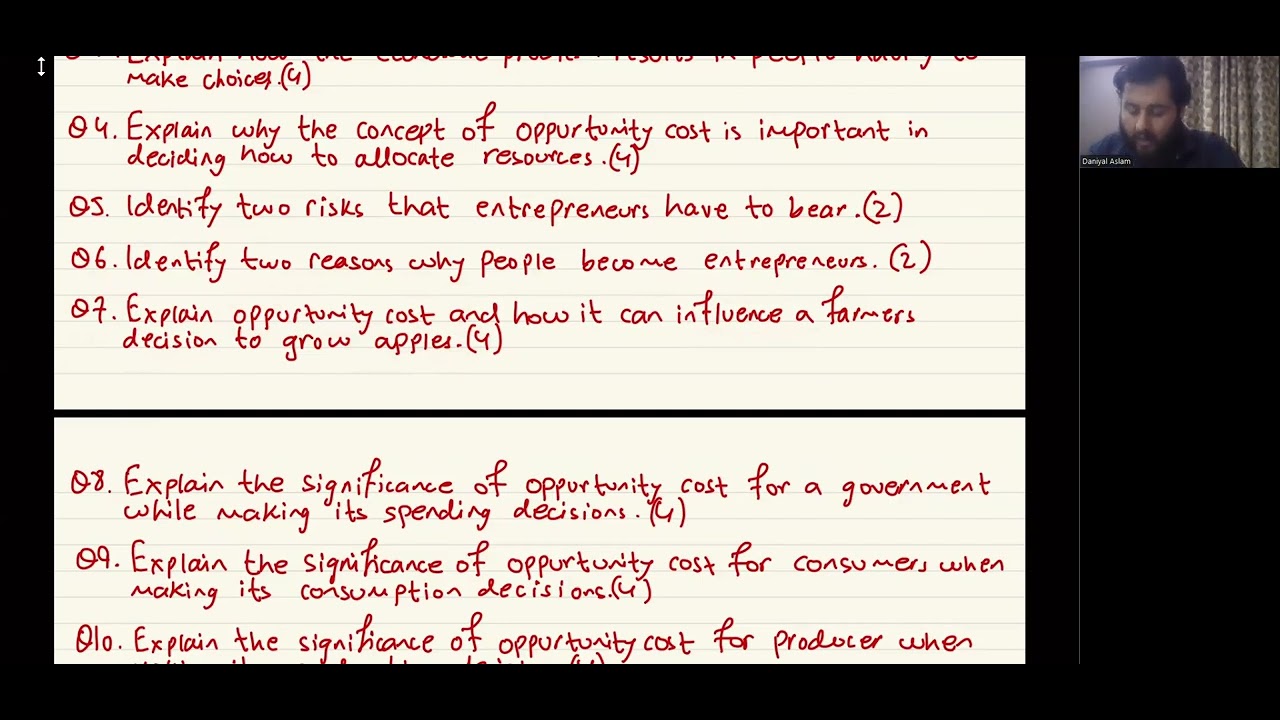 make choices.(4)
Q4. Explain why the concept of oppurtunity cost is important in
deciding how to allocate resources.(4)
Q5. Identify two risks that entrepreneurs have to bear.(2)
Q6. Identify two reasons why people become entrepreneurs. (2)
Q7. Explain oppurtunity cost and how it can influence a farmers
decision to grow apples.(4)
Q8. Explain the significance of oppurtunity cost for a government
while making its spending decisions. (4)
Q9. Explain the significance of oppurtunity cost for consumers when
making its consumption decisions.(4)
Q10. Explain the significance of oppurtunity cost for producer when
Daniyal Aslam